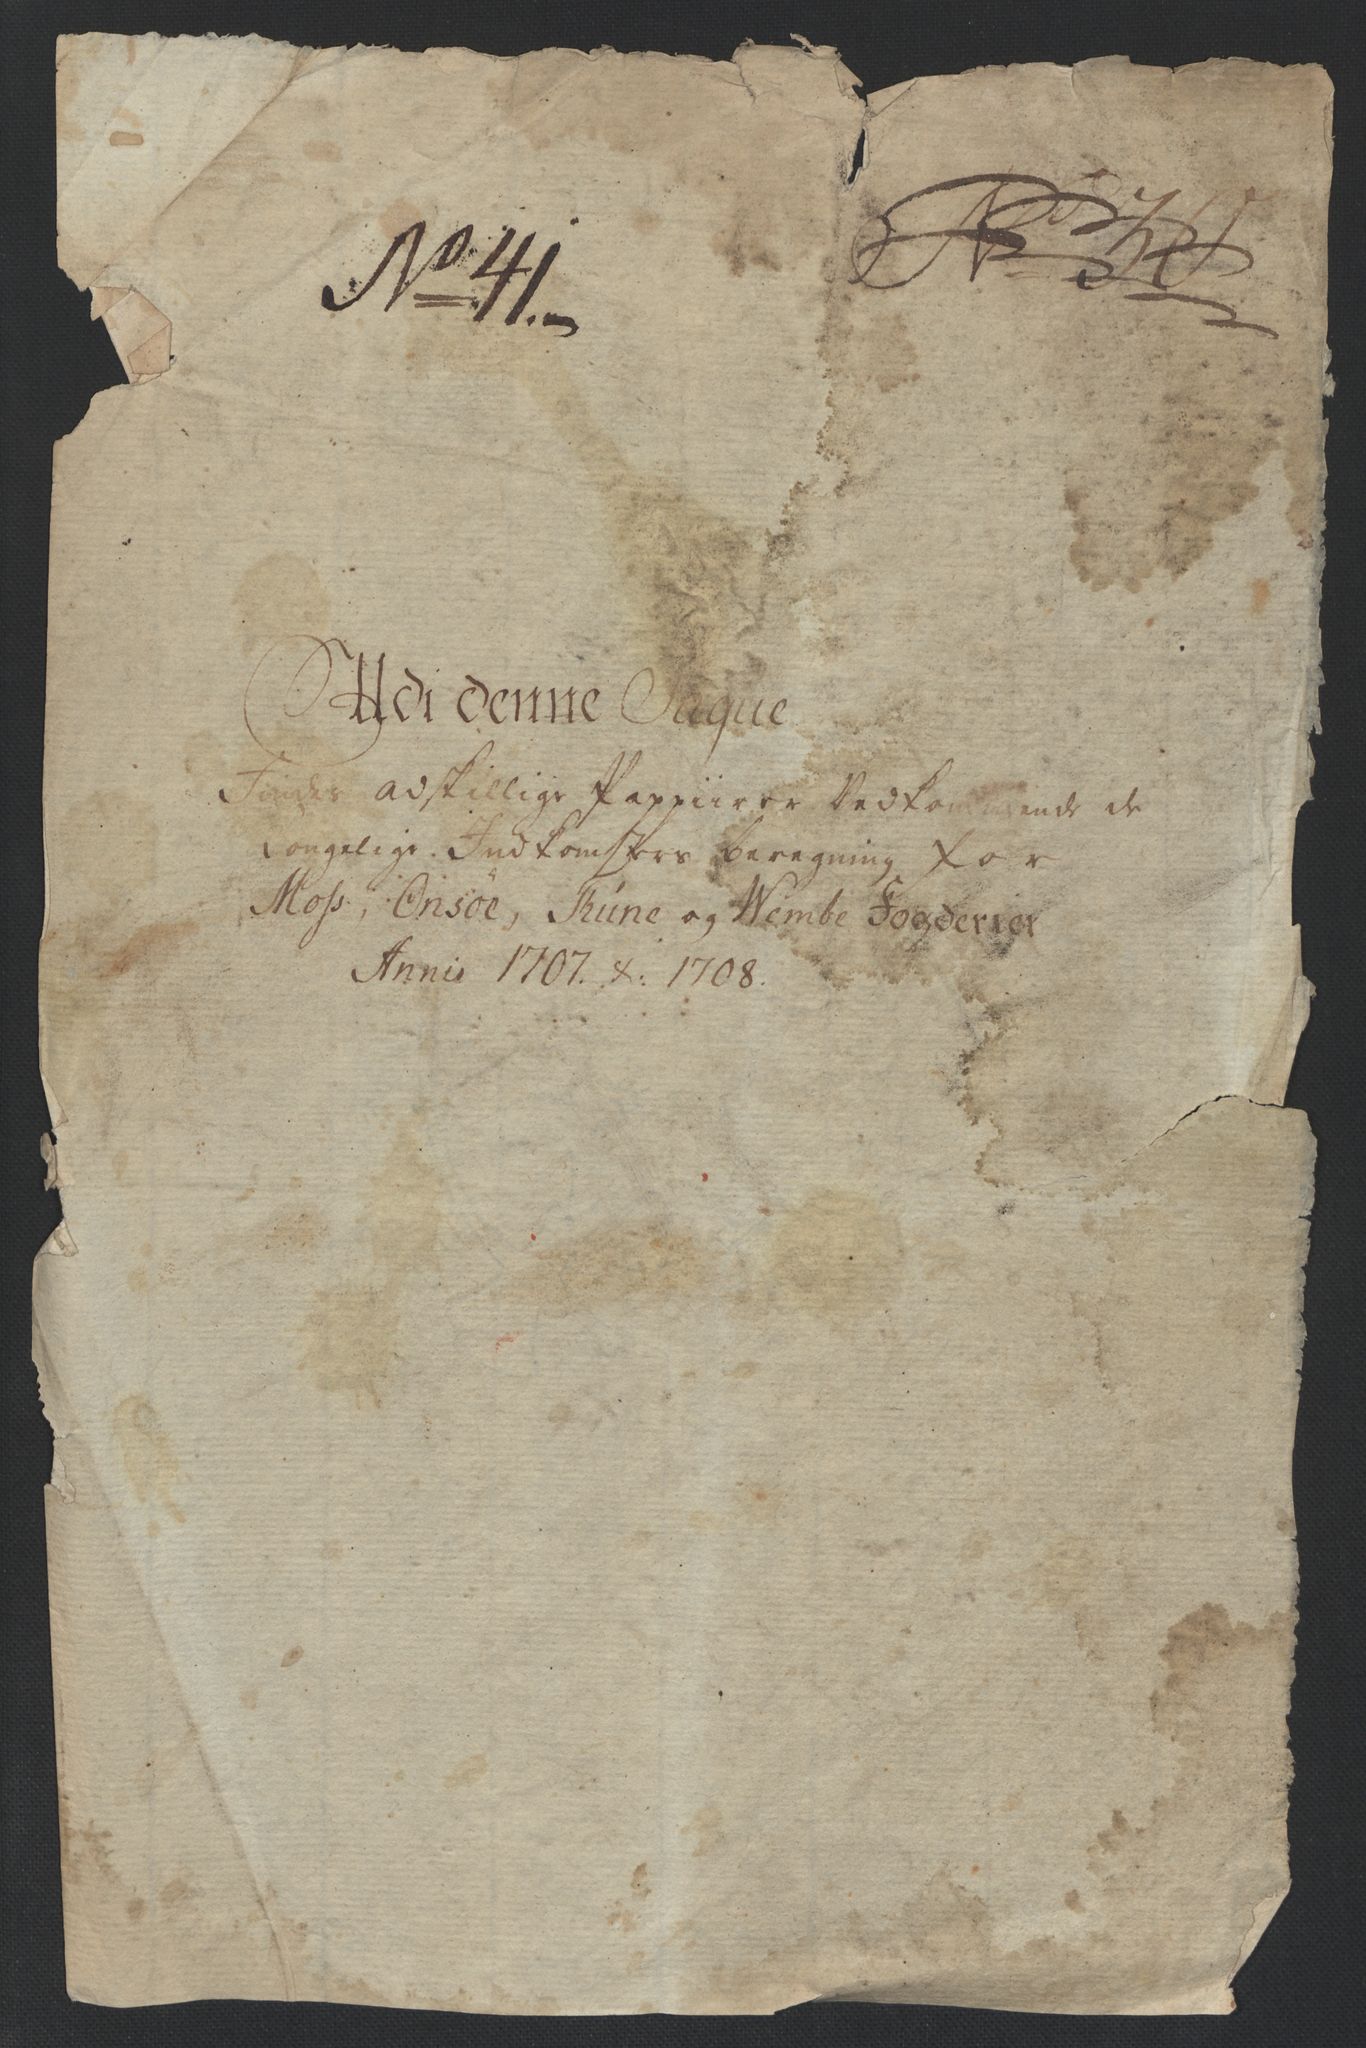 No 41.
No
Udi denne Laque
Findes adskillige Pappiirer Vedkommende de
Kongelige Indkomsters beregning for
Moss, Onsöe, Tüne og Wembe Fogderier
Annis 1707. &. 1708.